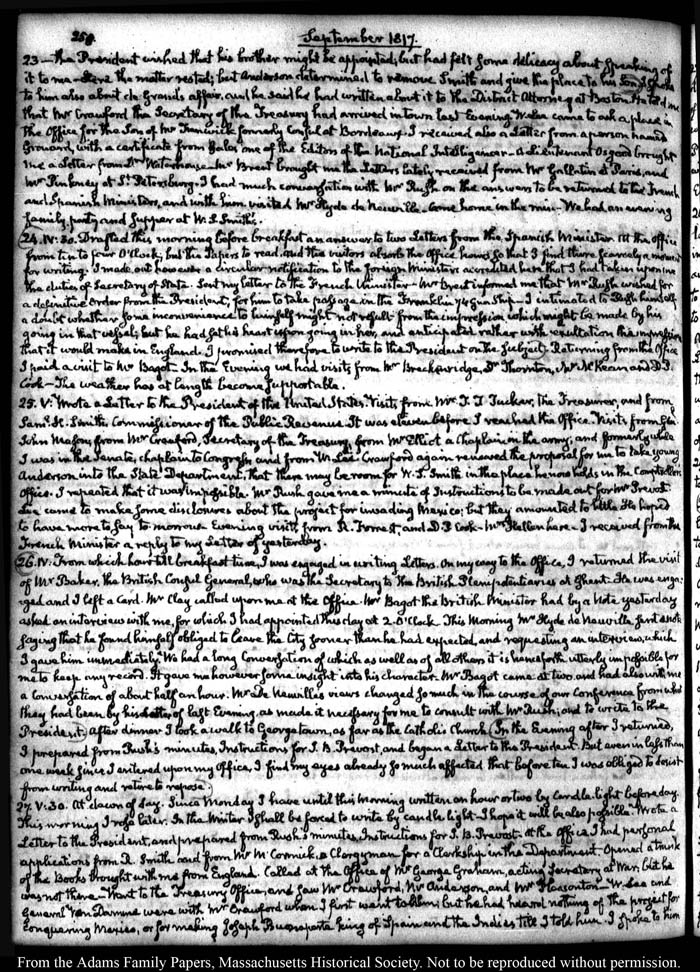 258.
September 1817.
23 — the President wished that his brother might be appointed, but had felt some delicacy about speaking of
it to me. Here the matter rested; but Anderson determined to remove Smith and give the place to his Son. I spoke
to him also about de Grand's affair, and he said he had written about it to the District Attorney at Boston. He told me
that Mr Crawford the Secretary of the Treasury had arrived in town last Evening. Wilson came to ask a place in
the Office for the Son of Mr Fenwick formerly Consul at Bordeaux. I received also a Letter from a person named
Grouard, with a certificate from Gales one of the Editors of the National Intelligencer — a Lieutenant Osgood brought
me a Letter from Dr Waterhouse. Mr Brent brought me the Letters lately received from Mr Gallatin at Paris, and
Mr Pinkney at St Petersburg. I had much conversation with Mr Rush on the answers to be returned to the French
and Spanish Ministers, and with him visited Mr Hyde de Neuville. Came home in the rain. We had an evening
family party and Supper at W. S. Smith's.
24. IV:30. Drafted this morning before breakfast an answer to two Letters from the Spanish Minister. At the office
from ten to four O'Clock, but the Papers to read, and the visitors absorb the Office hours so that I find there scarcely a moment
for writing. I made out however a circular notification to the foreign Ministers accredited here that I had taken upon me
the duties of Secretary of State. Sent my Letter to the French Minister — Mr Brent informed me that Mr Rush wished for
a definitive Order from the President, for him to take passage in the Franklin 74 gun Ship. I intimated to Rush himself
a doubt whether some inconvenience to himself might not result from the impression which might be made by his
going in that vessel; but he had set his heart upon going in her, and anticipated rather with exultation the impression
that it would make in England. I promised therefore to write to the President on the subject. Returning from the Office
I paid a visit to Mr Bagot. In the Evening we had visits from Mr Breckenridge, Dr Thornton, Mr McKean and D. P.
Cook — The weather has at length become supportable.
25. V: Wrote a Letter to the President of the United States. Visits from Mr T. T. Tucker, the Treasurer, and from
Saml. H. Smith, Commissioner of the Public Revenue. It was eleven before I reached the Office. Visits from Genl.
John Mason, from Mr Crawford, Secretary of the Treasury, from Mr Elliot a Chaplain in the army, and formerly while
I was in the Senate, chaplain to Congress and from W. Lee. Crawford again renewed the proposal for me to take young
Anderson into the State Department, that there may be room for W. S. Smith in the place he now holds in the Comptroller's
Office. I repeated that it was impossible. Mr Rush gave me a minute of Instructions to be made out for Mr Prevost.
Lee came to make some disclosures about the project for invading Mexico; but they amounted to little. He hoped
to have more to say to-morrow. Evening visit from R. Forrest, and D. P. Cook — Mr Hellen here — I received from the
French Minister a reply to my Letter of yesterday.
26. IV. From which hour till breakfast time, I was engaged in writing Letters. On my way to the Office, I returned the visit
of Mr Baker, the British Consul General, who was the Secretary to the British Plenipotentiaries at Ghent. He was enga-
ged and I left a Card. Mr Clay called upon me at the Office. Mr Bagot the British Minister had by a Note yesterday
asked an interview with me, for which I had appointed this day at 2. O'Clock. This Morning Mr Hyde de Neuville sent a note
saying that he found himself obliged to leave the City sooner than he had expected, and requesting an interview, which
I gave him immediately. We had a long Conversation of which as well as of all others it is henceforth utterly impossible for
me to keep any record. It gave me however some insight into his character. Mr Bagot came at two, and had also with me
a conversation of about half an hour. Mr de Neuville's views changed so much in the course of our Conference from what
they had been by his letter of last Evening, as made it necessary for me to consult with Mr Rush, and to write to the
President. After dinner I took a walk to Georgetown, as far as the Catholic Church. In the Evening after I returned,
I prepared from Rush's minutes, Instructions for J. B. Prevost, and began a Letter to the President. But even in less than
one week since I entered upon my office, I find my eyes already so much affected that before ten I was obliged to desist
from writing and retire to repose.
27. V:30. At dawn of day. Since Monday I have until this morning written an hour or two by Candle-light before day.
This morning I rose later. In the Winter I shall be forced to write by candle light. I hope it will be also possible. Wrote a
Letter to the President, and prepared from Rush's minutes, Instructions for J. B. Prevost. At the Office, I had personal
applications from R. Smith and from Mr McCormick, a Clergyman for a Clerkship in the Department. Opened a trunk
of the Books brought with me from England. Called at the Office of Mr George Graham, acting Secretary at War, but he
was not there — Went to the Treasury Office, and saw Mr Crawford, Mr Anderson, and Mr Pleasonton — W. Lee and
General Van Damme were with Mr Crawford when I first went to him; but he had heard nothing of the project for
Conquering Mexico, or for making Joseph Buonaparte king of Spain and the Indies till I told him. I spoke to him
From the Adams Family Papers, Massachusetts Historical Society. Not to be reproduced without permission.